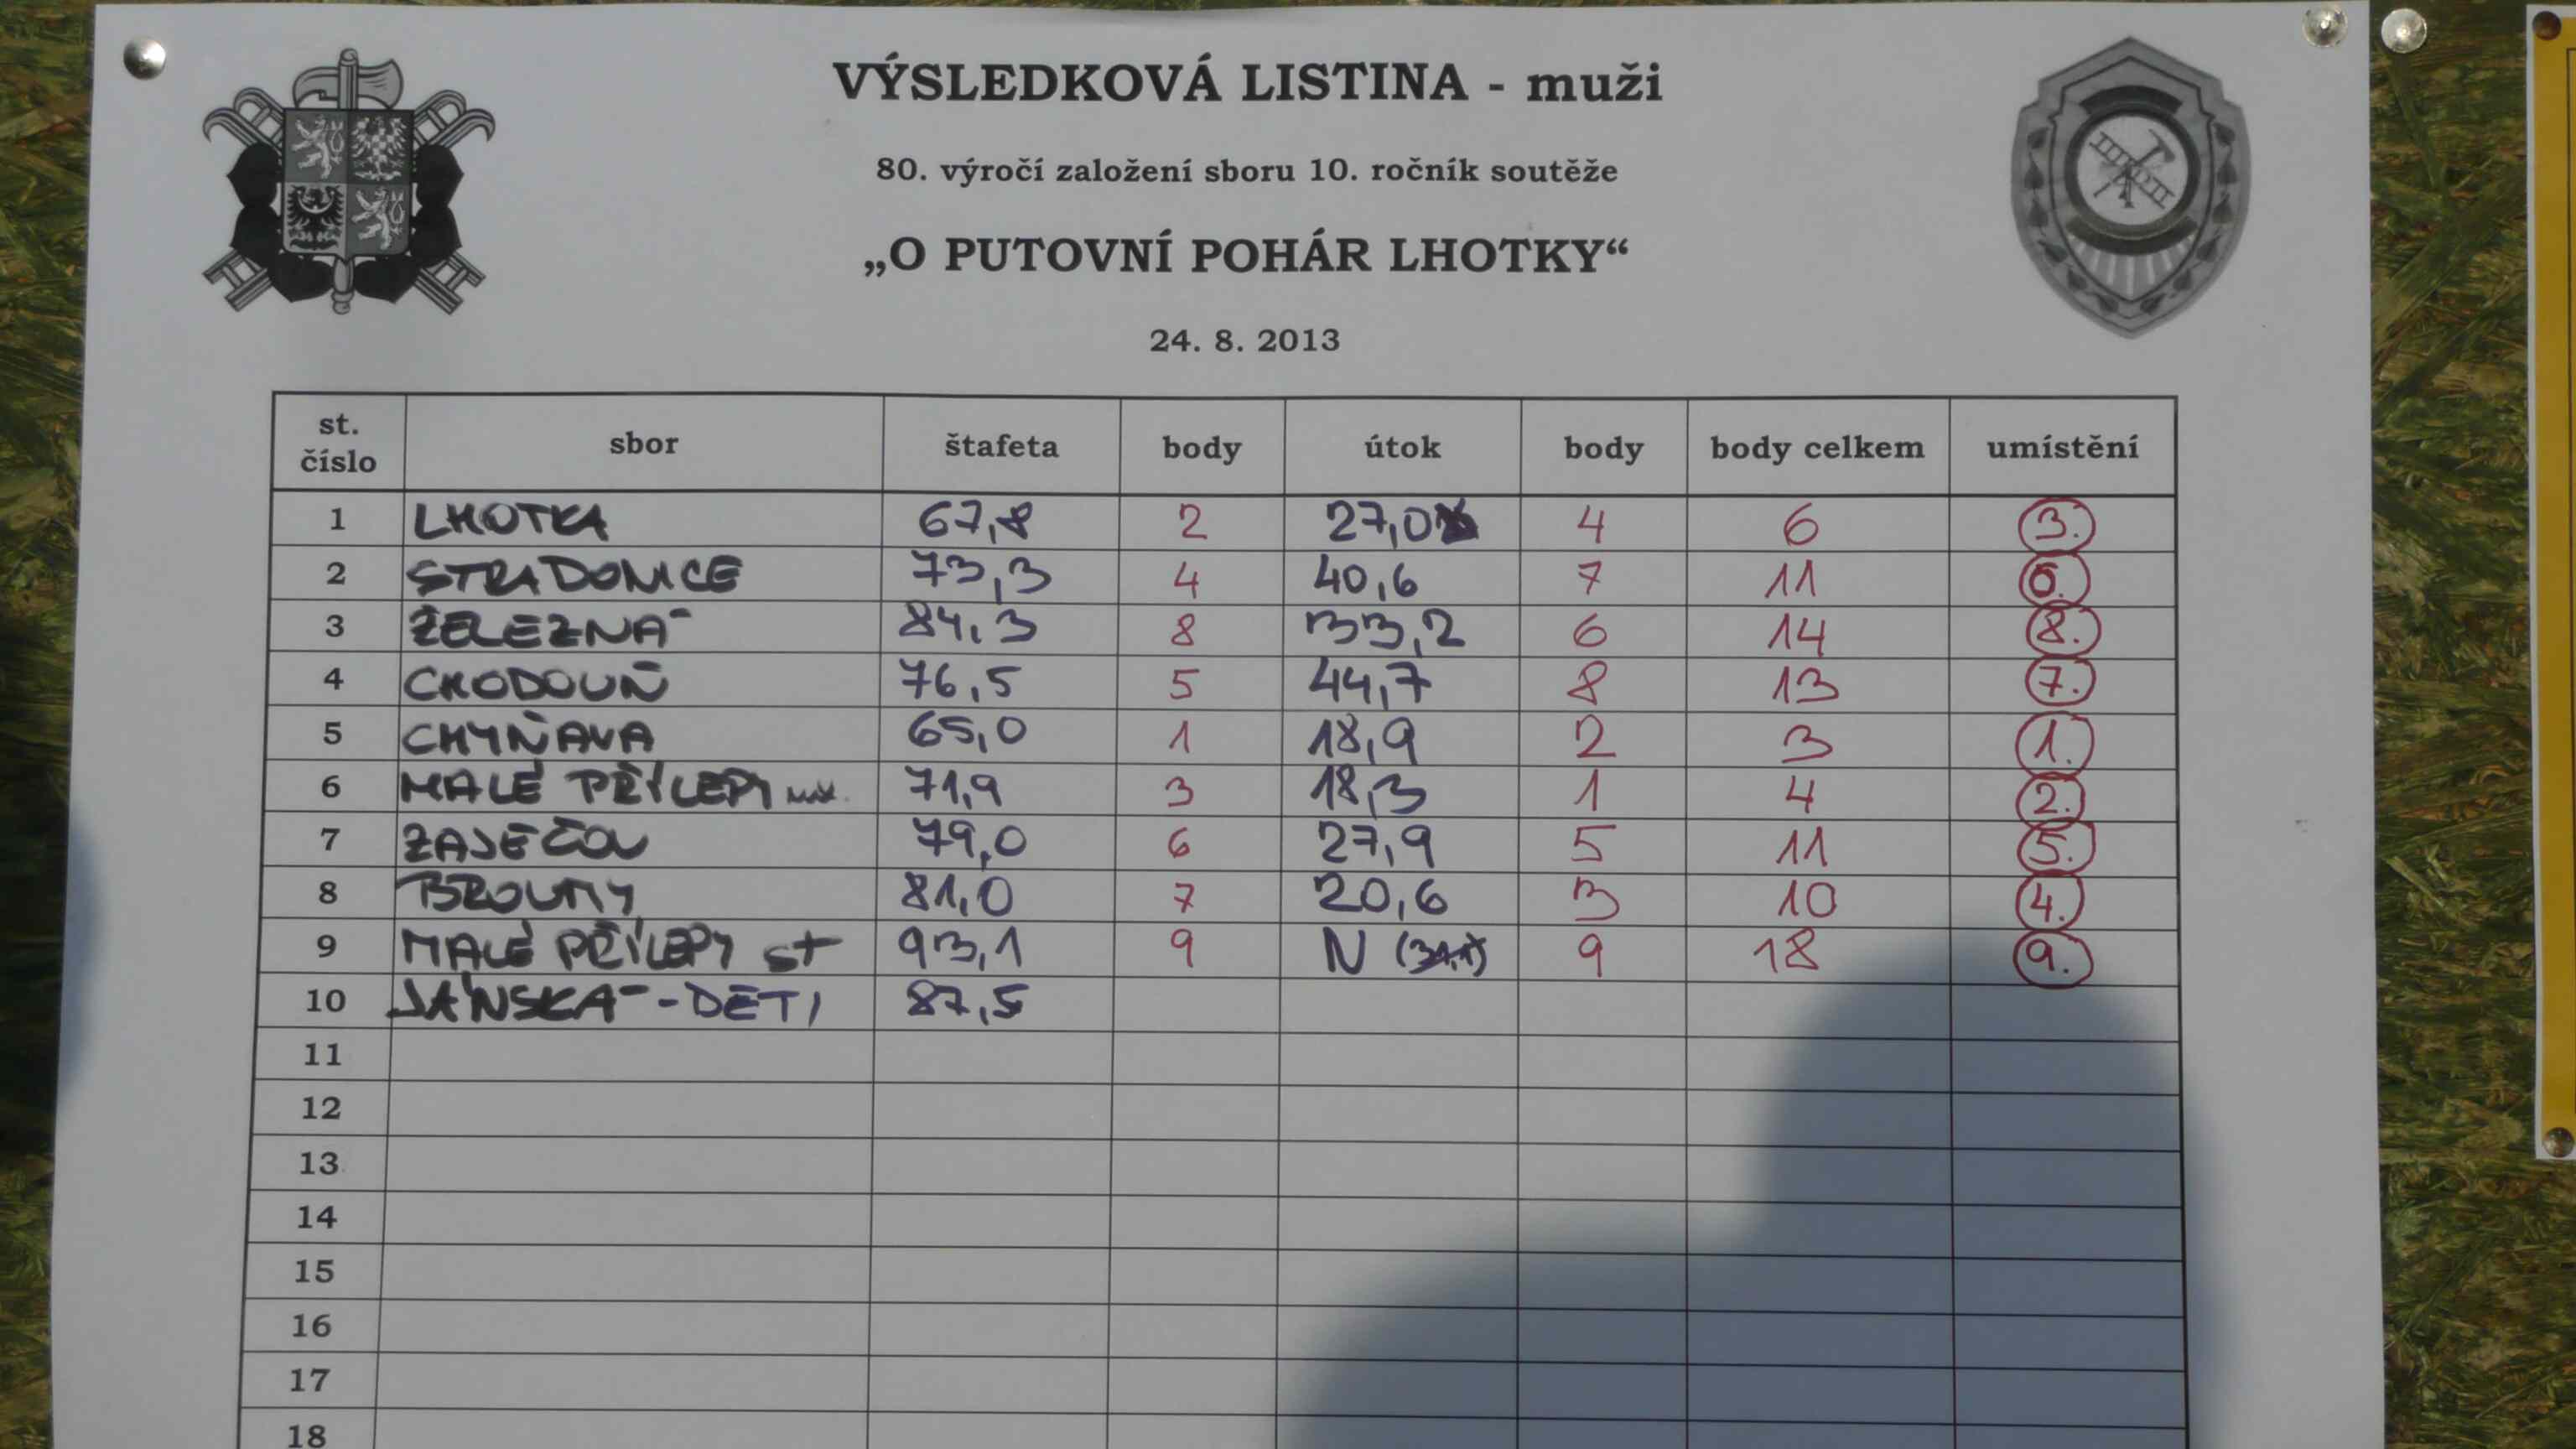 VÝSLEDKOVÁ LISTINA - muži
80. výročí založení sboru 10. ročník soutěže
„O PUTOVNÍ POHÁR LHOTKY“
24. 8. 2013
st. číslo sbor štafeta body útok body body celkem umístění
1 LHOTKA 67,8 2 27,0 4 6 3.
2 STRADONICE 73,3 4 40,6 7 11 6.
3 ŽELEZNÁ 84,3 8 33,2 6 14 8.
4 CHODOUŇ 76,5 5 44,7 8 13 7.
5 CHYŇAVA 65,0 1 18,9 2 3 1.
6 MALÉ PŘÍLEPY 71,9 3 18,3 1 4 2.
7 ZAJEČOV 79,0 6 27,9 5 11 5.
8 BROUMY 81,0 7 20,6 3 10 4.
9 MALÉ PŘÍLEPY st 93,1 9 N 9 18 9.
10 JÁNSKÁ - DĚTI 87,5
11
12
13
14
15
16
17
18